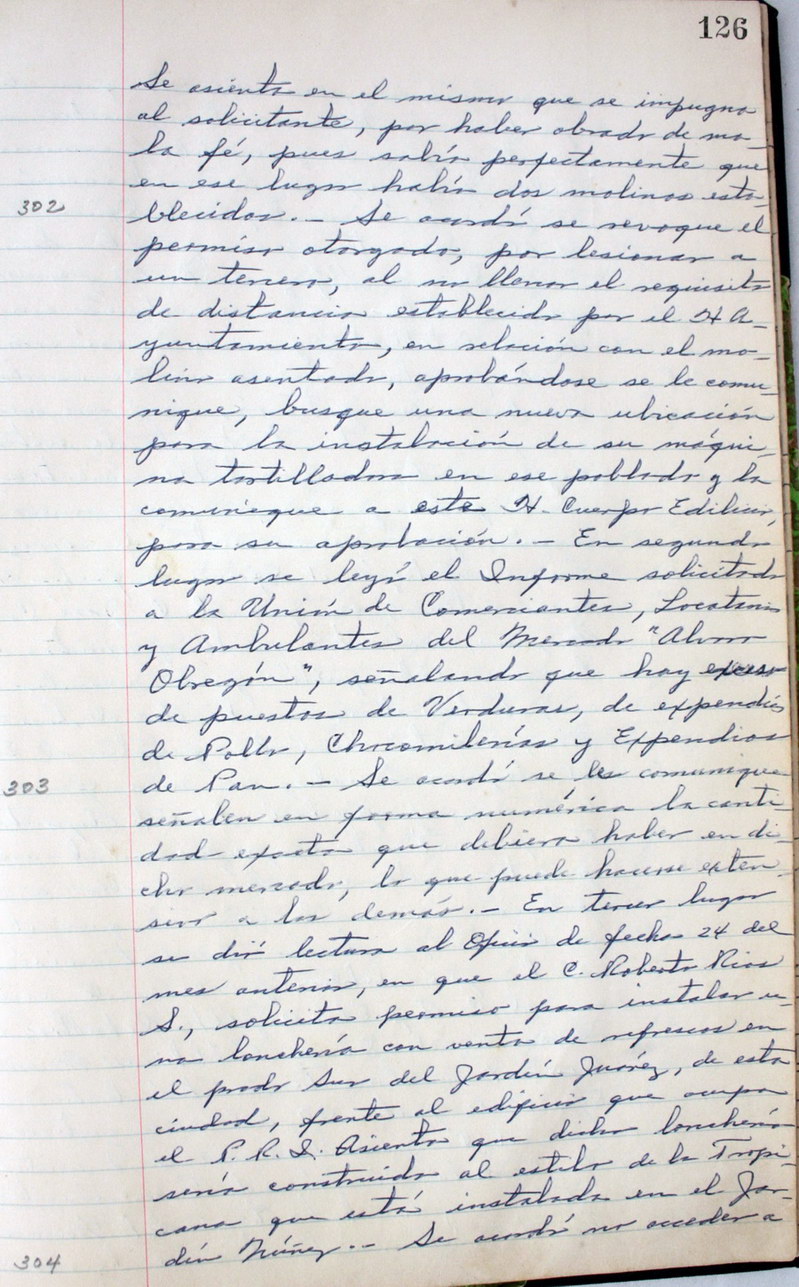 126
Se asienta en el mismo que se impugna
al solicitante, por haber obrado de ma-
la fé, pues sabía perfectamente que
en ese lugar había dos molinos esta-
302
blecidos.- Se acordó se revoque el
permiso otorgado, por lesionar a
un tercero, al no llenar el requisito
de distancia establecido por el H A-
yuntamiento, en relación con el mo-
lino asentado, aprobándose se le comu-
nique, busque una nueva ubicación
para la instalación de su máqui-
na tortilladora en ese poblado y la
comunique a este H. Cuerpo Edilicio,
para su aprobación.- En segundo
lugar se leyó el Informe solicitado
a la Unión de Comerciantes, Locatarios
y Ambulantes del Mercado "Alvaro
Obregón", señalando que hay exceso
de puestos de Verduras, de expendios
de Pollo, Chocomilerías y Expendios
303
de Pan.- Se acordó se les comunique
señalen en forma numérica la canti-
dad exacta que debiera haber en di-
cho mercado, lo que puede hacerse exten-
sivo a los demás.- En tercer lugar
se dió lectura al Oficio de fecha 24 del
mes anterior, en que el C. Roberto Rios
S., solicita permiso para instalar u-
na lonchería con venta de refrescos en
el prado Sur del Jardín Juárez, de esta
ciudad, frente al edificio que ocupa
el P. R. I. Asienta que dicha lonchería
sería construida al estilo de la Tropi-
cana que está instalada en el Jar-
304
dín Núñez.- Se acordó no acceder a